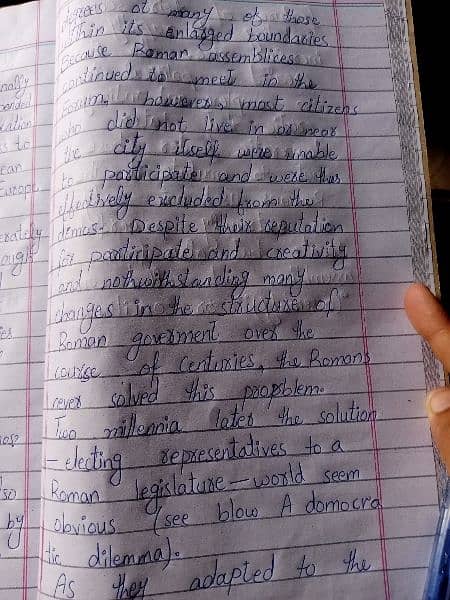 degrees of many of those
within its enlarged boundaries
Because Roman assemblices
continued to meet in the
Forum, however, most citizens
who did not live in or near
the city itself were unable
to participate and were thus
effectively excluded from the
demus. Despite their reputation
for participate and creativity
and nothwithstanding many
changes in the structure of
Roman goverment over the
course of Centuries, the Romans
never solved this propblem.
Two millennia later the solution
- electing representatives to a
Roman legislature - world seem
obvious (see blow A domocra
tic dilemma).
As they adapted to the